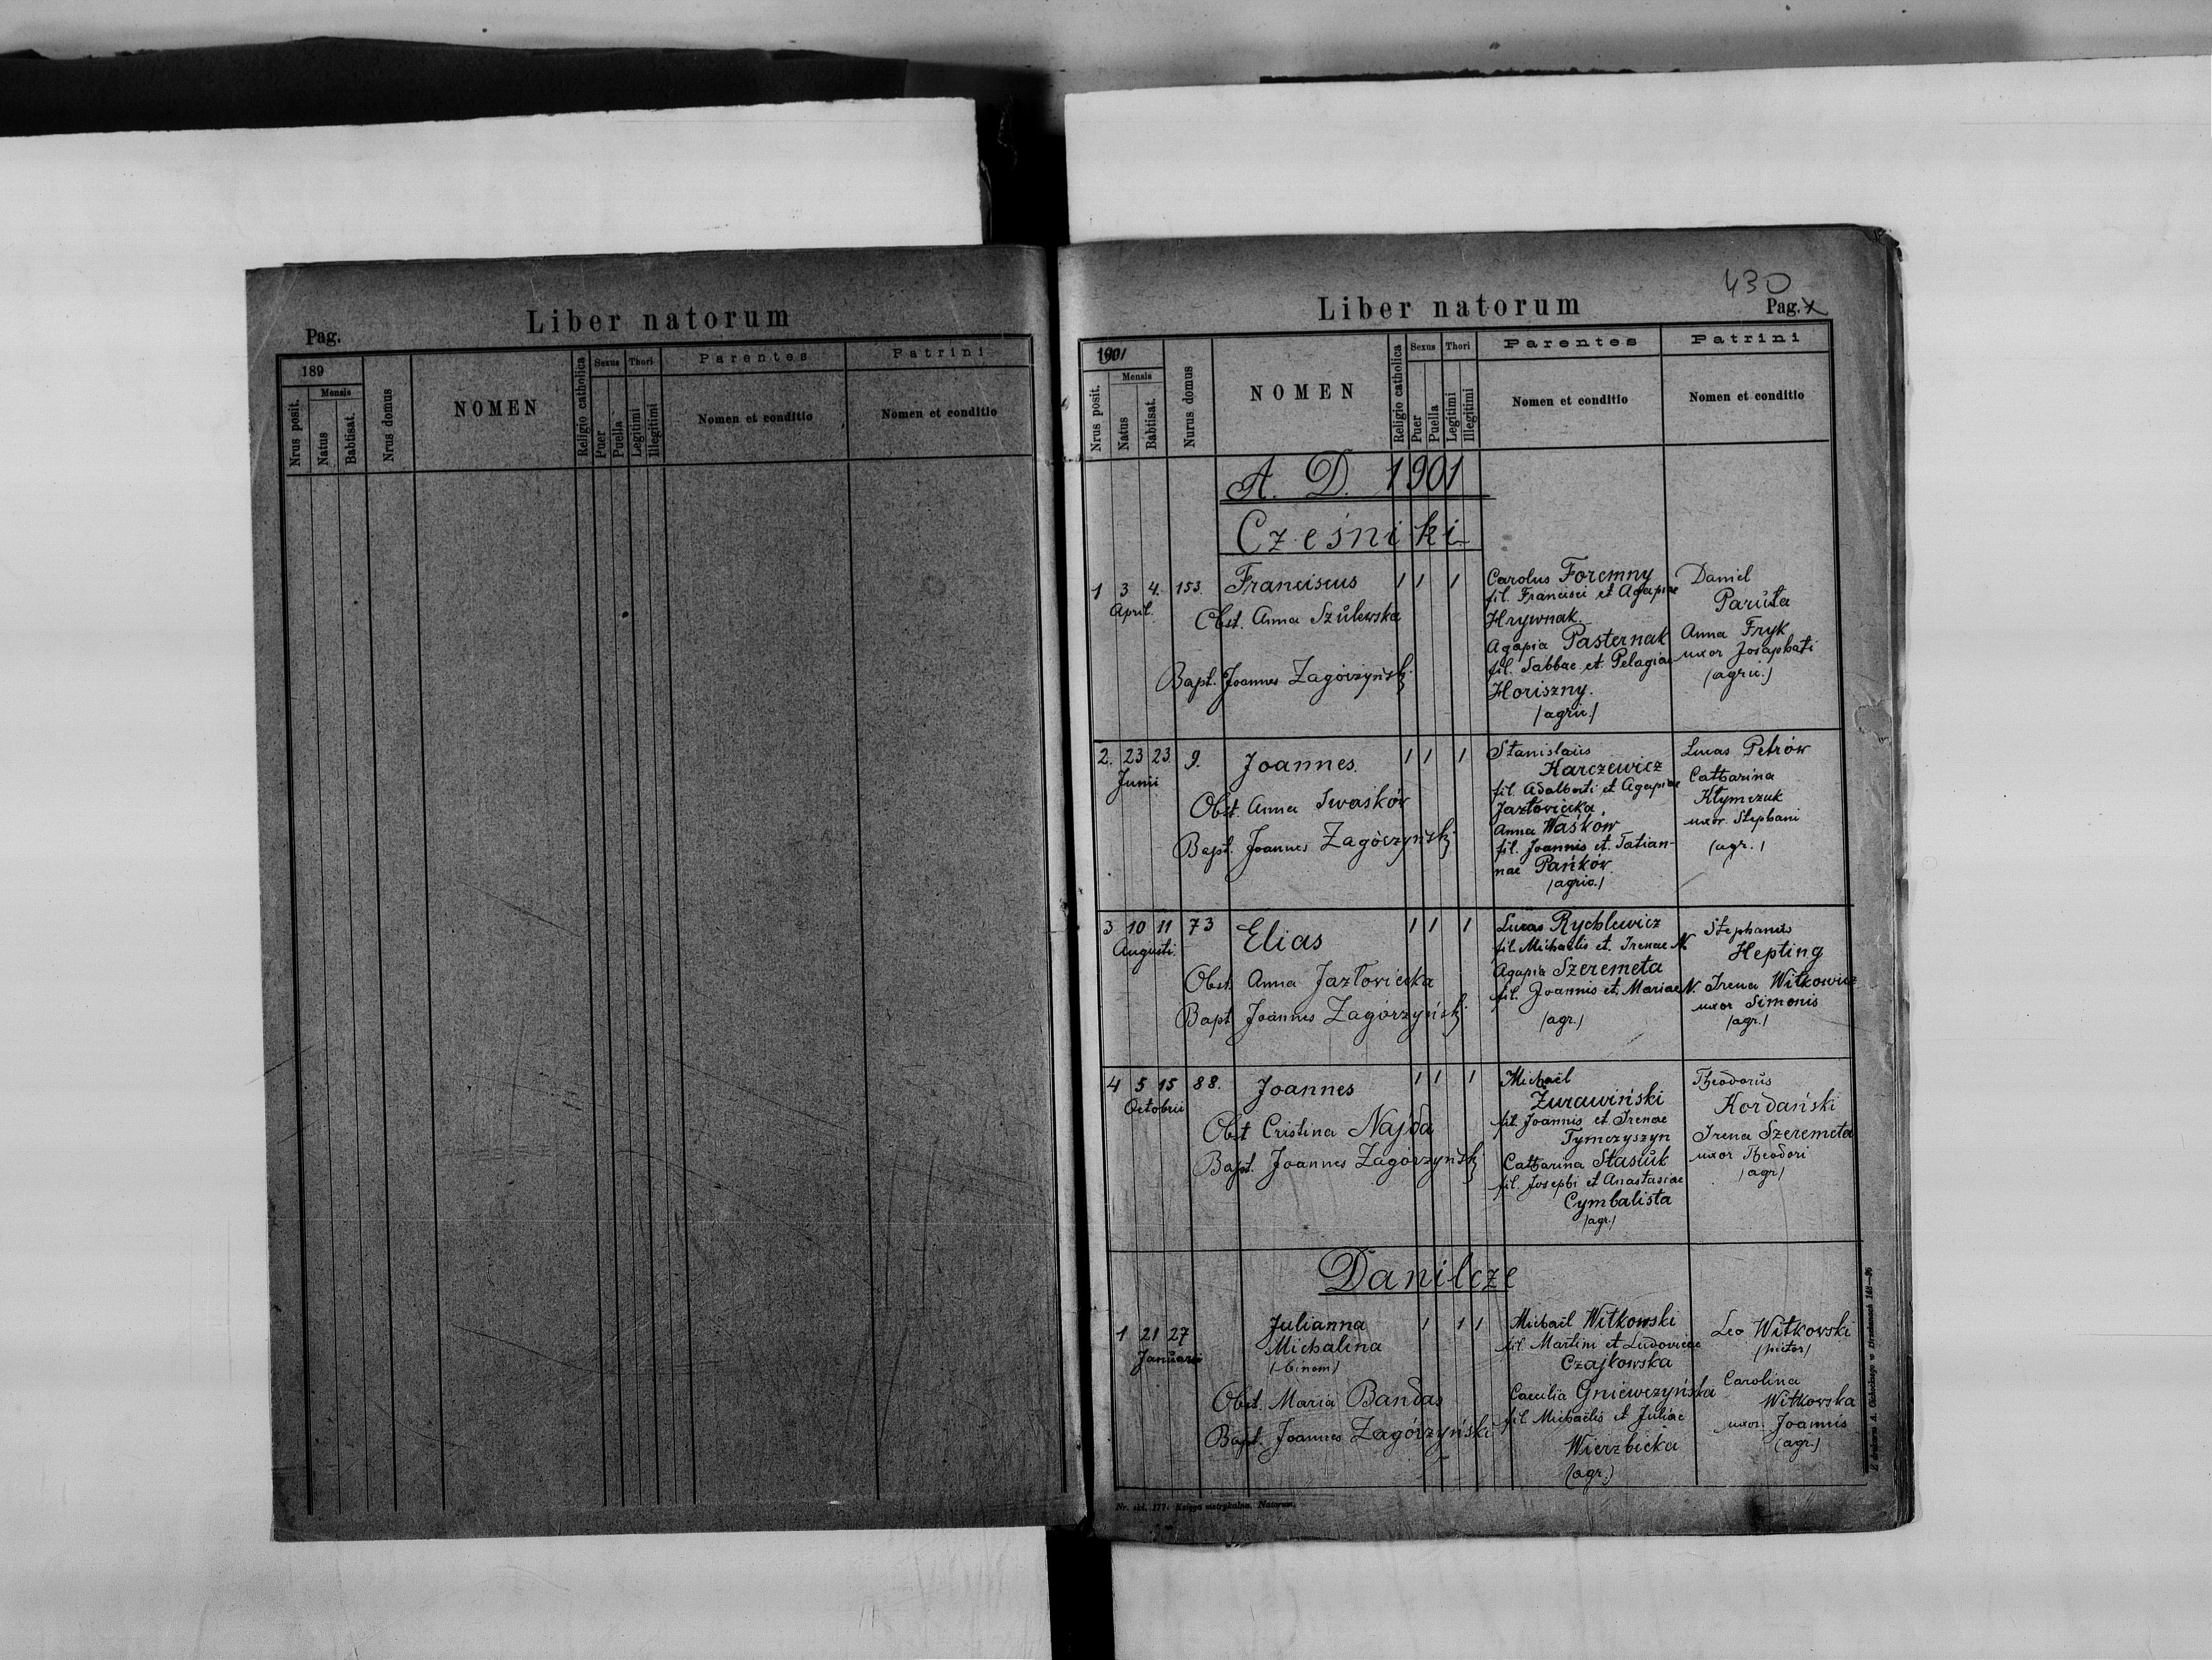 Liber natorum
Pag.
189
Nrus posit.
Mensis
Natus
Babtisat.
Nrus domus
NOMEN
Religio catholica
Sexus
Puer
Puella
Thori
Legitimi
Illegitimi
Parentes
Nomen et conditio
Patrini
Nomen et conditio
430
Liber natorum
Pag.
1901
Nrus posit.
Mensis
Natus
Babtisat.
Nurus domus
NOMEN
Religio catholica
Sexus
Puer
Puella
Thori
Legitimi
Illegitimi
Parentes
Nomen et conditio
Patrini
Nomen et conditio
A. D. 1901
Cześniki
1 3 4. 153. Franciscus 1 1 1
April.
Obst. Anna Szulewska
Bapt. Joannes Zagórzyński
Carolus Foremny
fil. Francisci et Agapiae
Hrywnak.
Agapia Pasternak
fil. Sabbae et Pelagiae
Horiszny.
/agric./
Daniel
Paruta
Anna Fryk
uxor Josaphati
(agric.)
2. 23 23. 9. Joannes. 1 1 1
Junii
Obst. Anna Iwaśków
Bapt. Joannes Zagórzyński
Stanislaus
Karczewicz
fil. Adalberti et Agapiae
Jazłowiecka
Anna Waśków
fil. Joannis et Tatian-
nae Pańków.
/agric./
Lucas Petrów
Catharina
Kłymczuk
uxor Stephani
/agr./
3 10 11 73 Elias 1 1 1
Augusti.
Obst. Anna Jazłowiecka
Bapt Joannes Zagórzyński
Lucas Rychlewicz
fil. Michaelis et Irenae N.
Agapia Szeremeta
fil. Joannis et Mariae N.
/agr./
Stephanus
Hepting
Irena Witkowicz
uxor Simonis
/agr./
4 5 15 88. Joannes 1 1 1
Octobris
Obst Cristina Najda
Bapt. Joannes Zagórzyński
Michaël
Żurawiński
fil. Joannis et Irenae
Tymczyszyn
Catharina Stasiuk
fil. Josephi et Anastasiae
Cymbalista
/agr./
Theodorus
Kordański
Irena Szeremeta
uxor Theodori
/agr/
Danilcze
1 21 27 Julianna 1 1 1
Januarii Michalina
(binom)
Obst. Maria Bandas
Bapt. Joannes Zagórzyński
Michaël Witkowski
fil. Martini et Ludovicae
Czajkowska
Caecilia Gniewczyńska
fil. Michaëlis et Juliae
Wierzbicka
(agr.)
Leo Witkowski
/pictor/
Carolina
Witkowska
uxor. Joannis
(agr.)
Nr. skl. 177. Księga metrykalna. Natorum.